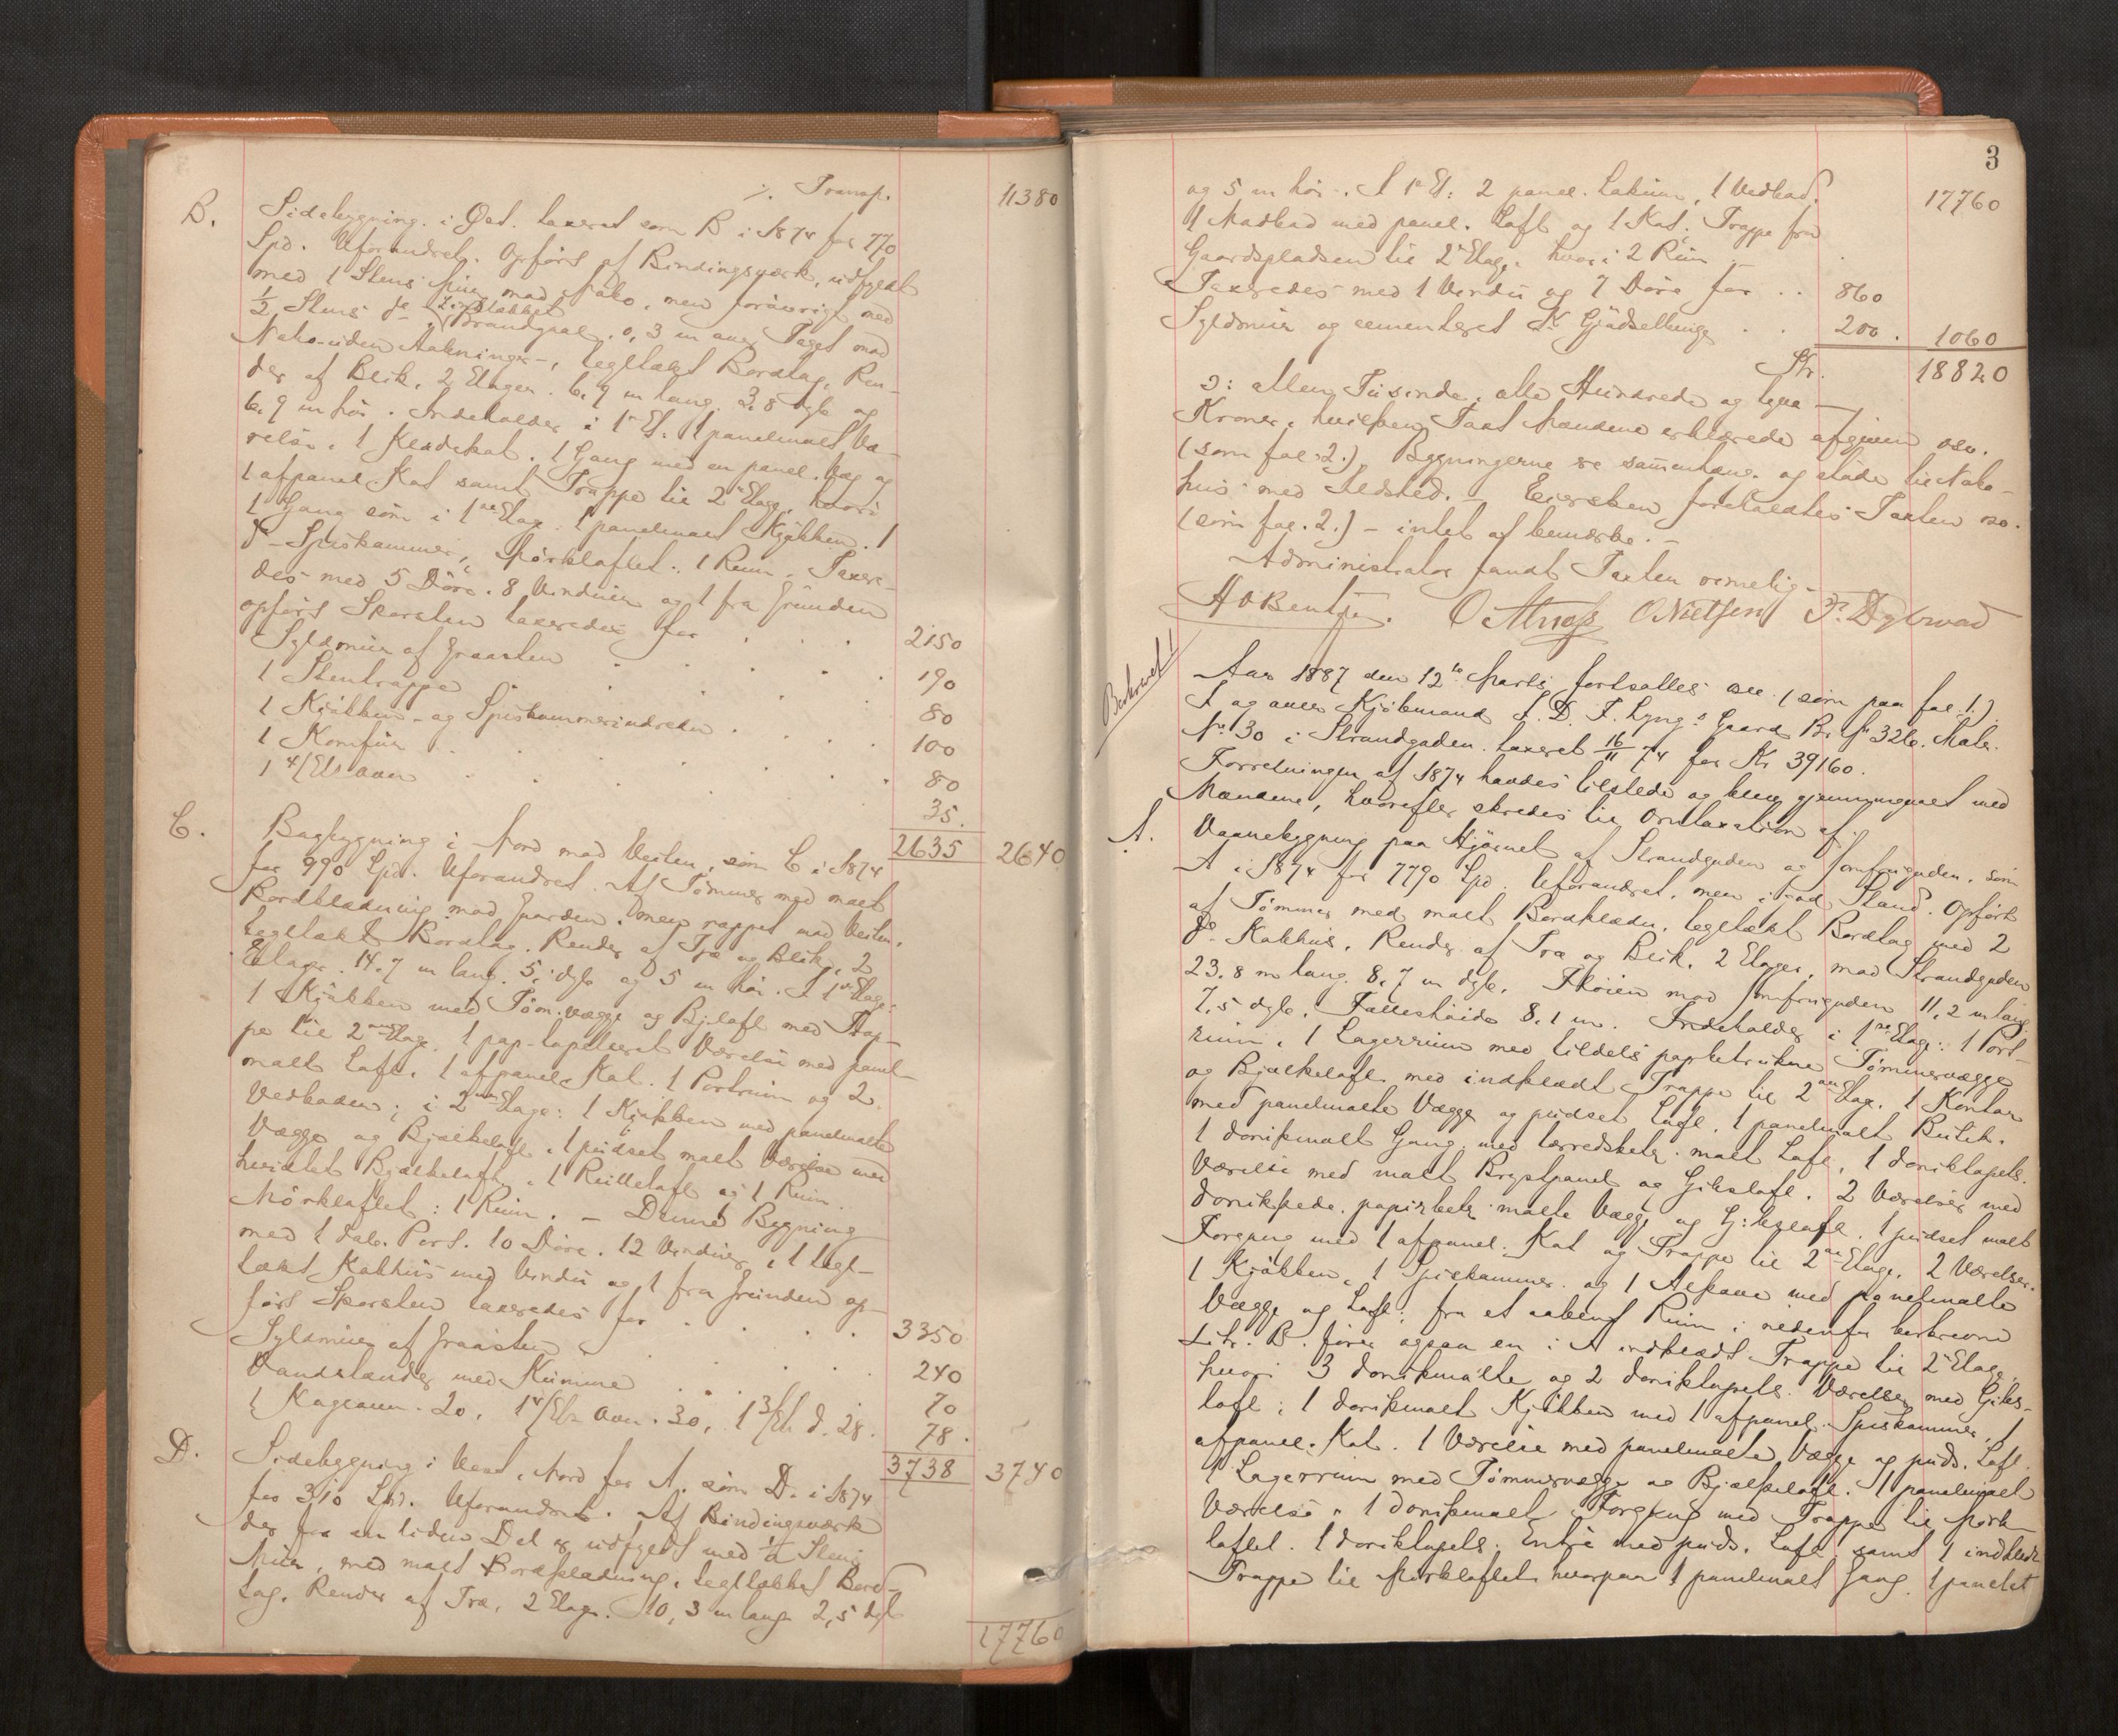 ·/. Transp. 11380
B. Sidebygning i Øst. taxeret som B i 1874 for 770
Spd. Uforandret. Opført af Bindingsværk, udfyldt
med 1 Stens Mur mod Nabo, men forøvrigt med
½ Stens do Zinktækket Brandgavl 0,3 m over Taget mod
Nabo uden Aabninger, tegltækt Bordtag, Ren-
der af Blik. 2 Etager. 6,9 m lang 3,8 dyb og
6,9 m høi. Indeholder i 1e Et. 1 panelmalt Væ-
relse, 1 Klædekot, 1 Gang med en panel. Væg og
1 afpanel. Kot samt Trappe til 2n Etage, hvori
1 Gang som i 1ste Etage. 1 panelmalt Kjøkken. 1
do Spiskammer, Mørkloftet: 1 Rum. Taxere-
des med 5 Døre. 8 Vinduer og 1 fra Grunden
opført Skorsten taxeredes for . . . 2150
Syldmur af Graasten . . . 190
1 Stentrappe . . . 80
1 Kjøkken- og Spiskammerindreden . . . 100
1 Komfur . . . 80
1 4/Et Ovn . . . 35.
2635 2640
C. Bagbygning i Nord mod Veiten, som C i 1874
for 990 Spd. Uforandret. Af Tømmer med malt
Bordklædning mod Gaarden, men rappet mod Veiten,
tegltækt Bordtag. Render af Træ og Blik, 2
Etager. 14,7 m lang. 5, dyb og 5 m høi. I 1e Etage:
1 Kjøkken med Tøm.vægge og Bj.loft med Trap-
pe til 2den Etage. 1 pap-tapetseret Værelse med panel-
malt Loft. 1 afpanel. Kot. 1 Portrum og 2
Vedboder; i 2den Etage: 1 Kjøkken med panelmalte
Vægge og Bjælkeloft. 1 pudset malt Værelse med
hvidtet Bjælkeloft, 1 Rulleloft og 1 Rum.
Mørkloftet: 1 Rum. – Denne Bygning
med 1 dob. Port. 10 Døre. 12 Vinduer, 1 tegl-
tækt Kakhus med Vindu og 1 fra Grunden op-
ført Skorsten taxeredes for . . . 3350
Syldmur af Graasten . . . 240
Vandstænder med Kumme . . . 70
1 Kageovn. 20, 1 4/Et Ovn. 30, 1 3/Et d. 28. 78.
3738 3740
D. Sidebygning i Vest, Nord for A. som D. i 1874
for 310 Spd. Uforandret. Af Bindingsværk
der for en liden Del er udfyldt med ½ Stens
Mur, med malt Bordklædning, tegltækket Bord-
tag. Render af Træ, 2 Etager. 10,3 m lang 2,5 dyb
17760
3
og 5 m høi. I 1e Et: 2 panel. Lokum, 1 Vedbod. 17760
1 Madbod med panel. Loft og 1 Kot. Trappe fra
Gaardspladsen til 2n Etage, hvori 2 Rum
Taxeredes med 1 Vindu og 7 Døre for . . 860
Syldmur og cementeret Gjødselbinge . . 200. 1060
Kr. 18820
ɔ: atten Tusinde, otte Hundrede og tyve –
Kroner, hvilken Taxt Mændene erklærede afgiven osv.
(som fol. 2.) Bygningerne ere sammenhæng. og støde til Nabo-
hus med Ildsted. – Eiersken foreholdtes Taxten osv.
(som fol. 2.) – intet at bemærke. –
Administrator fandt Taxten rimelig –
O Nielsen F. Dybwad
Beskrevet!
Aar 1887 den 12te Marts fortsattes osv. (som paa fol. 1.)
I og over Kjøbmand I. D. F. Lyng's Gaard Br. No 326. Matr.
No 30 i Strandgaden taxeret 16/11 74 for Kr 39160.
Forretningen af 1874 havdes tilstede og blev gjennemgaaet med
Mændene, hvorefter skredes til Omtaxation af:
A. Vaanebygning paa Hjørnet af Strandgaden og Jomfrugaden, som
A i 1874 for 7790 Spd. Uforandret, men i god Stand. Opført
af Tømmer med malt Bordklædn. tegltækt Bordtag med 2
do Kakhus. Render af Træ og Blik. 2 Etager, mod Strandgaden
23,8 m lang. 8,7 m dyb. Fløien mod Jomfrugaden 11,2 m lang
7,5 dyb. Fælleshøide 8,1 m. Indeholder i 1ste Etage: 1 Port-
rum, 1 Lagerrum med tildels papbetrukne Tømmervægge
og Bjælkeloft med indklædt Trappe til 2den Etage, 1 Kontor
med panelmalte Vægge og pudset Loft. 1 panelmalt Butik.
1 donikmalt Gang med lærredsbetr. malt Loft, 1 doniktapets.
Værelse med malt Brystpanel og Gibsloft. 2 Værelser med
donikklæde. papirbetr. malte Vægge og Gibsloft. 1 pudset malt
Forgang med 1 afpanel. Kot og Trappe til 2den Etage. 2 Værelser.
1 Kjøkken, 1 Spiskammer og 1 Alkove med panelmalte
Vægge og Loft; fra et aabent Rum i nedenfor beskrevne
Litr. B. fører ogsaa en i A indklædt Trappe til 2n Etage,
hvori 3 donikmalte og 2 doniktapets. Værelser med Gibs-
loft; 1 donikmalt Kjøkken med 1 afpanel. Spiskammer, 1
afpanel. Kot. 1 Værelse med panelmalte Vægge og puds. Loft.
1 Lagerrum med Tømmervægge og Bjælkeloft. 1 panelmalt
Værelse, 1 donikmalt Forgang med Trappe til Mørk-
loftet. 1 doniktapets. Entré med puds. Loft samt 1 indklædt
Trappe til Mørkloftet hvorpaa 1 panelmalt Gang. 1 panelet